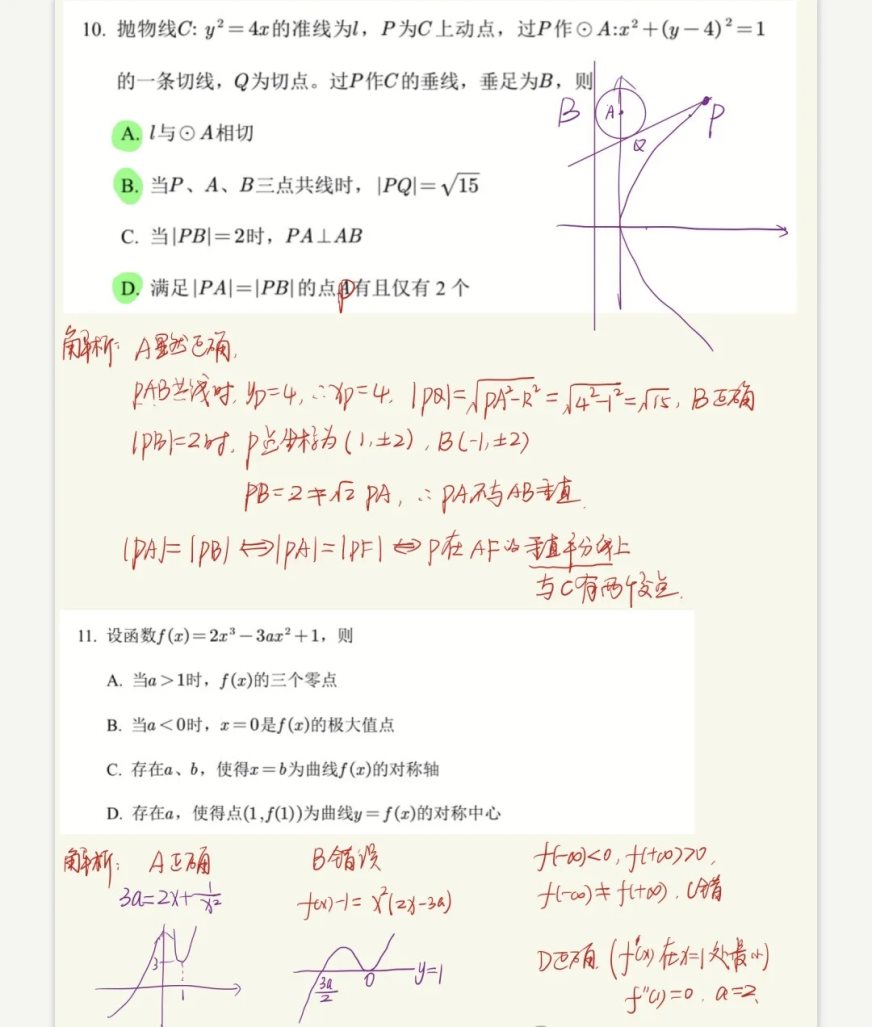 10. 抛物线C: y²=4x的准线为l，P为C上动点，过P作⊙A:x²+(y-4)²=1
的一条切线，Q为切点。过P作C的垂线，垂足为B，则
A. l与⊙A相切
B. 当P、A、B三点共线时，|PQ|=√15
C. 当|PB|=2时，PA⊥AB
D. 满足|PA|=|PB|的点P有且仅有2个
B A P
Q
解析: A显然正确.
PAB共线时, yp=4, ∴xp=4. |PQ|=√PA²-R²=√4²-1²=√15, B正确
|PB|=2时, P点坐标为(1,±2), B(-1,±2)
PB=2≠√2 PA, ∴PA不与AB垂直.
|PA|=|PB|⇔|PA|=|PF|⇔P在AF的垂直平分线上
与C有两个交点.
11. 设函数f(x)=2x³-3ax²+1，则
A. 当a>1时，f(x)的三个零点
B. 当a<0时，x=0是f(x)的极大值点
C. 存在a、b，使得x=b为曲线f(x)的对称轴
D. 存在a，使得点(1,f(1))为曲线y=f(x)的对称中心
解析: A正确
3a=2x+1/x²
3
1
B错误
f(x)-1=x²(2x-3a)
3a/2 0 y=1
f(-∞)<0, f(+∞)>0,
f(-∞)≠f(+∞). C错
D正确. (f'(x)在x=1处最小)
f''(1)=0. a=2.